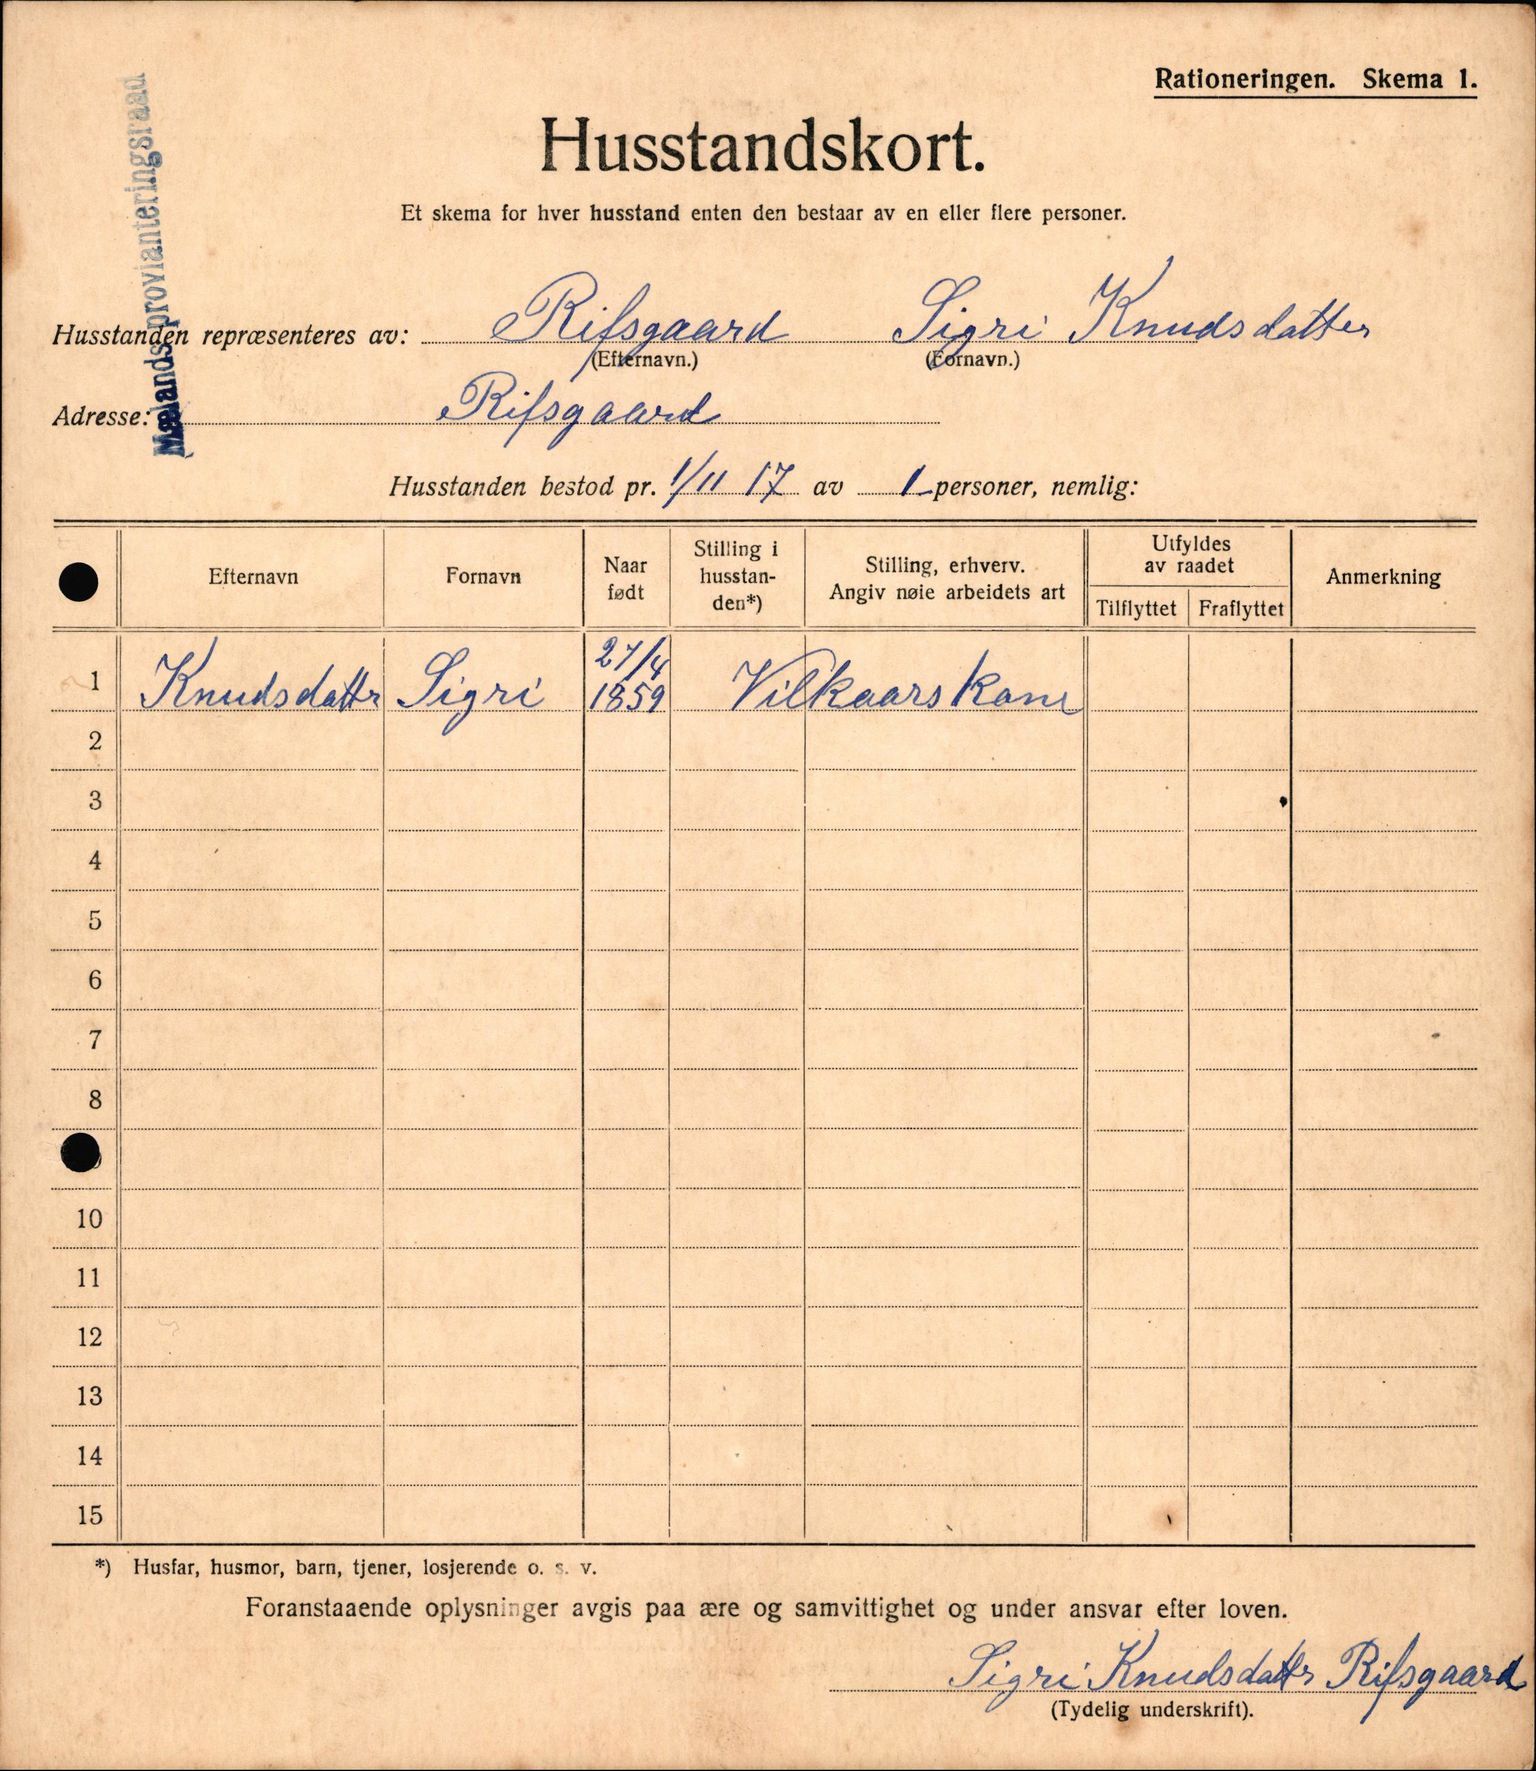 Rationeringen. Skema 1.
Mælands provianteringsraad
Husstandskort.
Et skema for hver husstand enten den bestaar av en eller flere personer.
Husstanden repræsenteres av: Rifsgaard Sigri Knudsdatter
(Efternavn.) (Fornavn.)
Adresse: Rifsgaard
Husstanden bestod pr. 1/11 17 av 1 personer, nemlig:
Efternavn Fornavn Naar født Stilling i husstanden*) Stilling, erhverv. Angiv nøie arbeidets art Utfyldes av raadet Tilflyttet Fraflyttet Anmerkning
1 Knudsdattr Sigri 27/4 1859 Vilkaarskone
2
3
4
5
6
7
8
10
11
12
13
14
15
*) Husfar, husmor, barn, tjener, losjerende o. s. v.
Foranstaaende oplysninger avgis paa ære og samvittighet og under ansvar efter loven.
Sigri Knudsdattr Rifsgaard
(Tydelig underskrift).